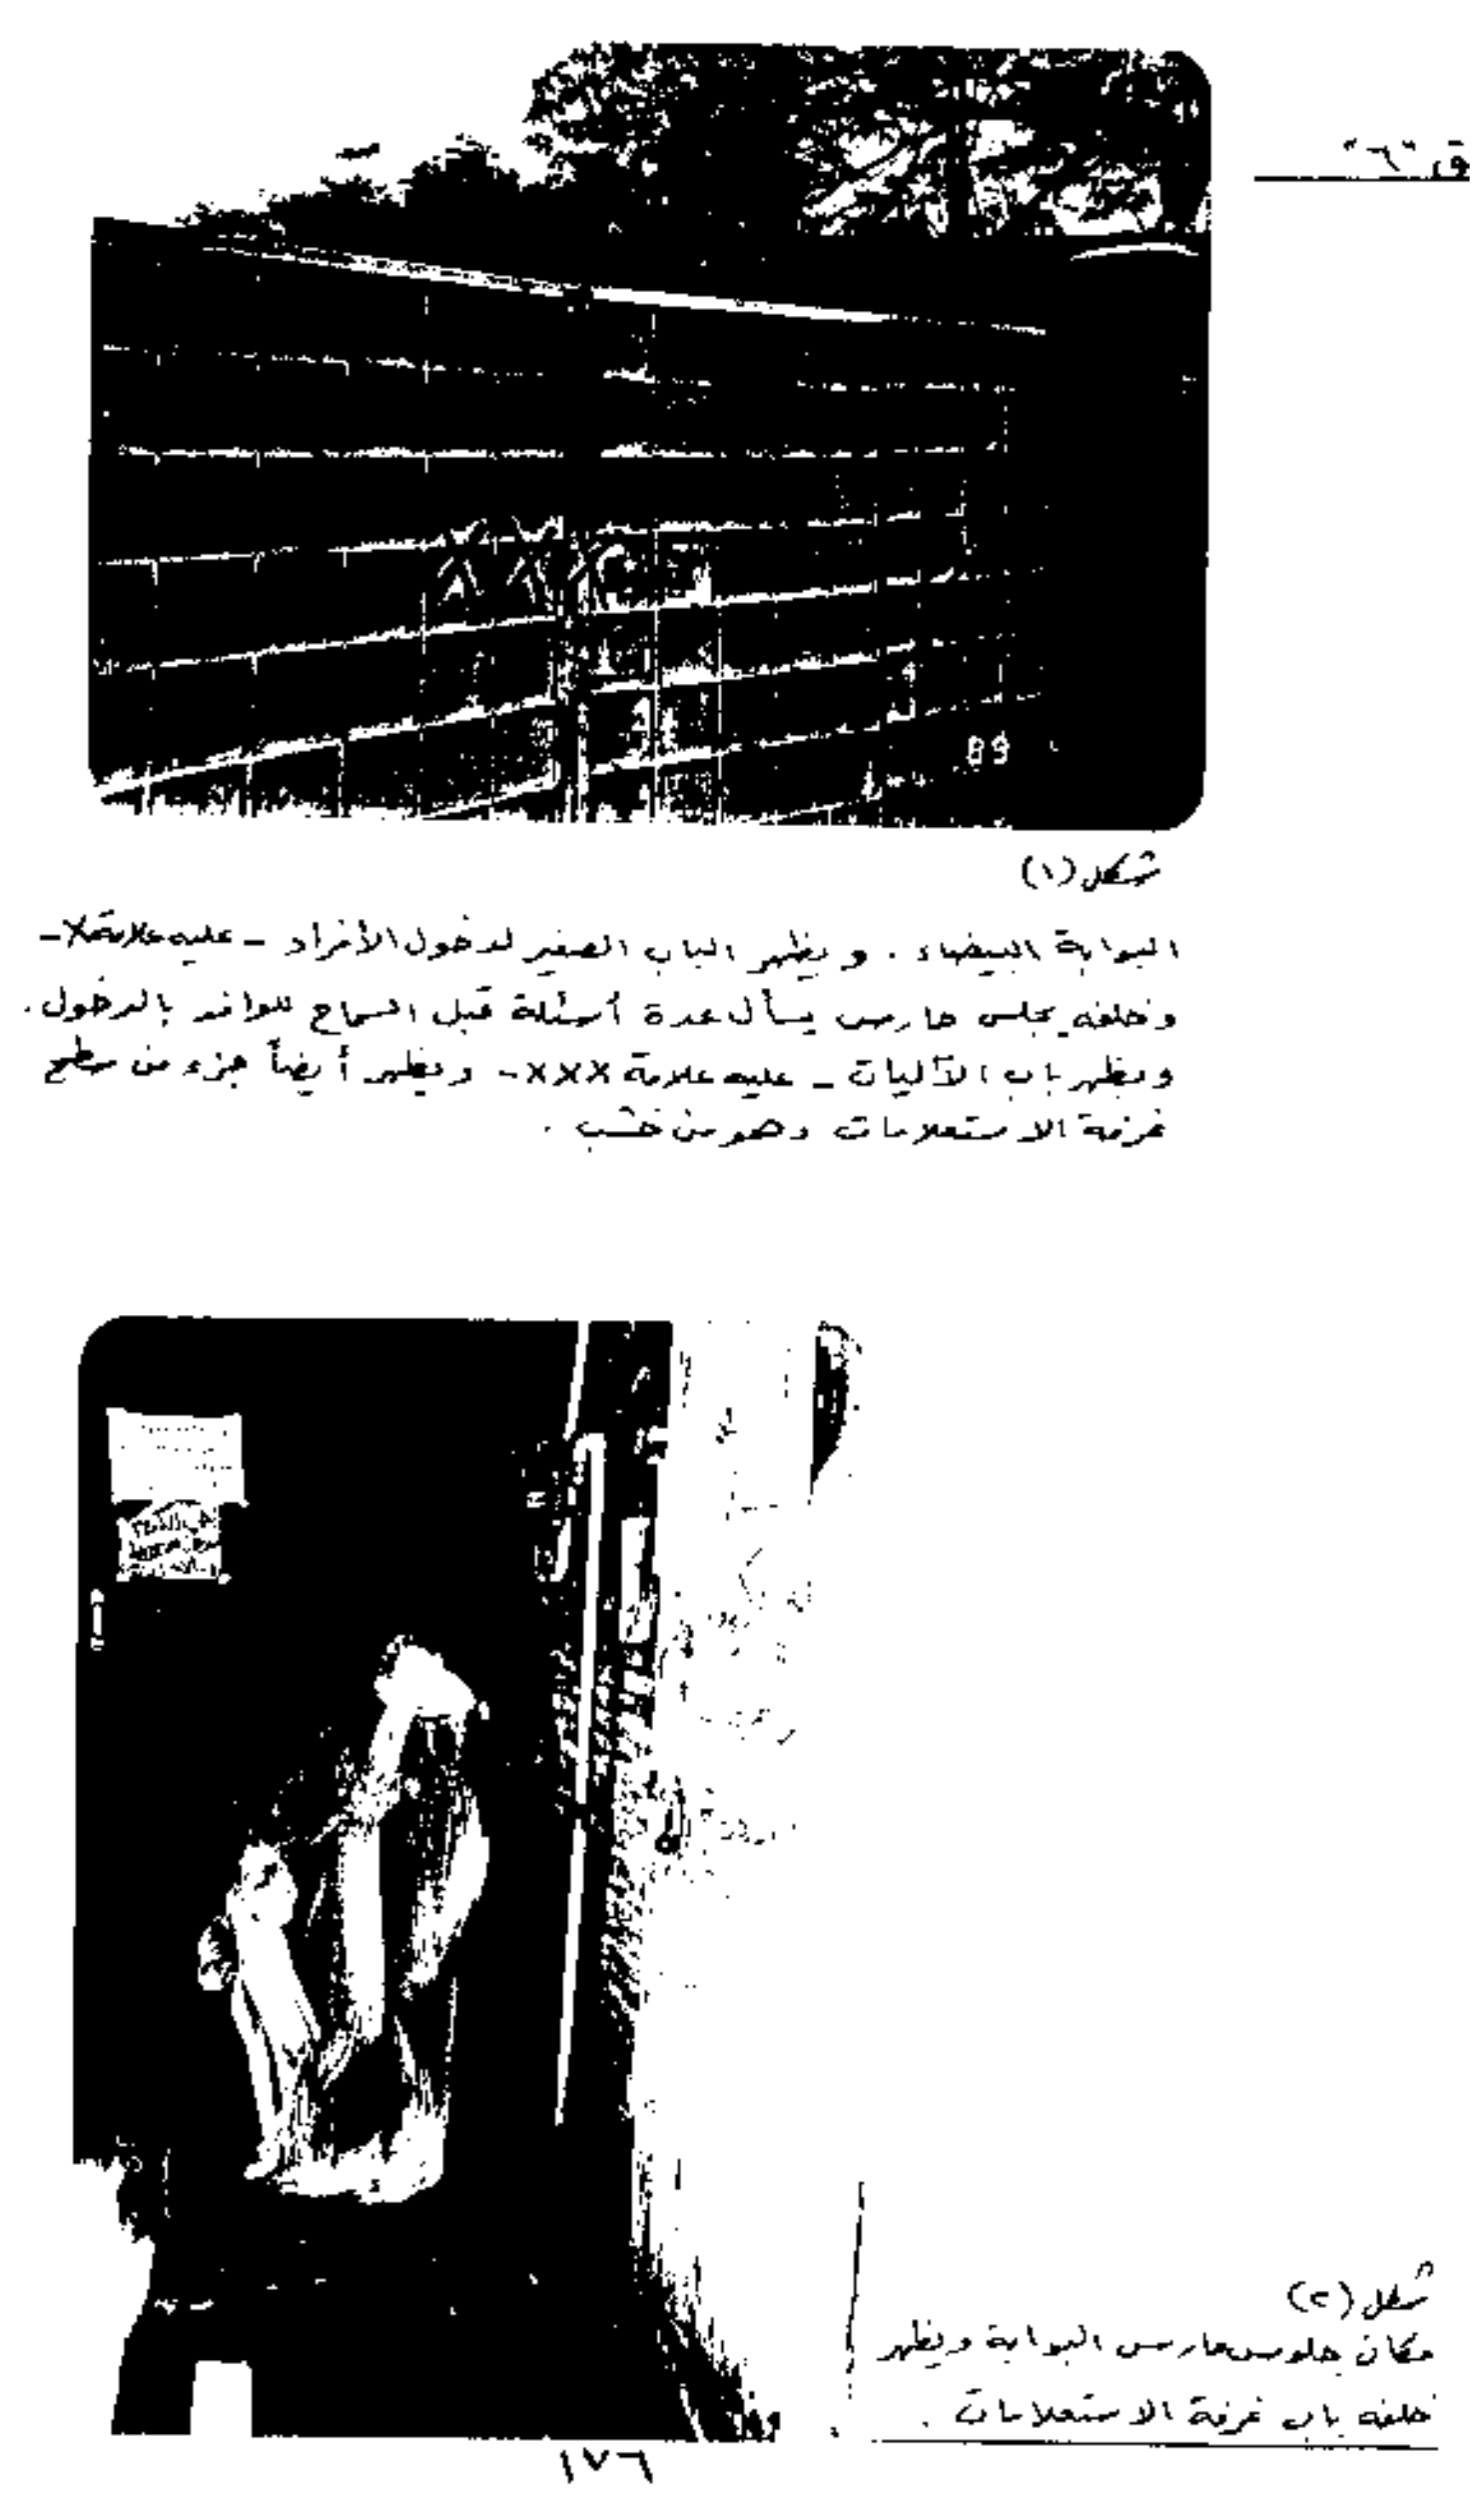 شكل (١)
البوابة البيضاء . ويظهر الباب الصغير لدخول الأفراد - عليه علامة X -
وخلفه يجلس حارس يسأل عدة أسئلة قبل السماح للزائر بالدخول .
ويظهر باب الآليات - عليه علامة XXX - ويظهر أيضاً جزء من سطح
غرفة الاستعلامات وهو من خشب .
شكل (٢)
مكان جلوس حارس البوابة ويظهر
خلفه باب غرفة الاستعلامات .
١٧٦